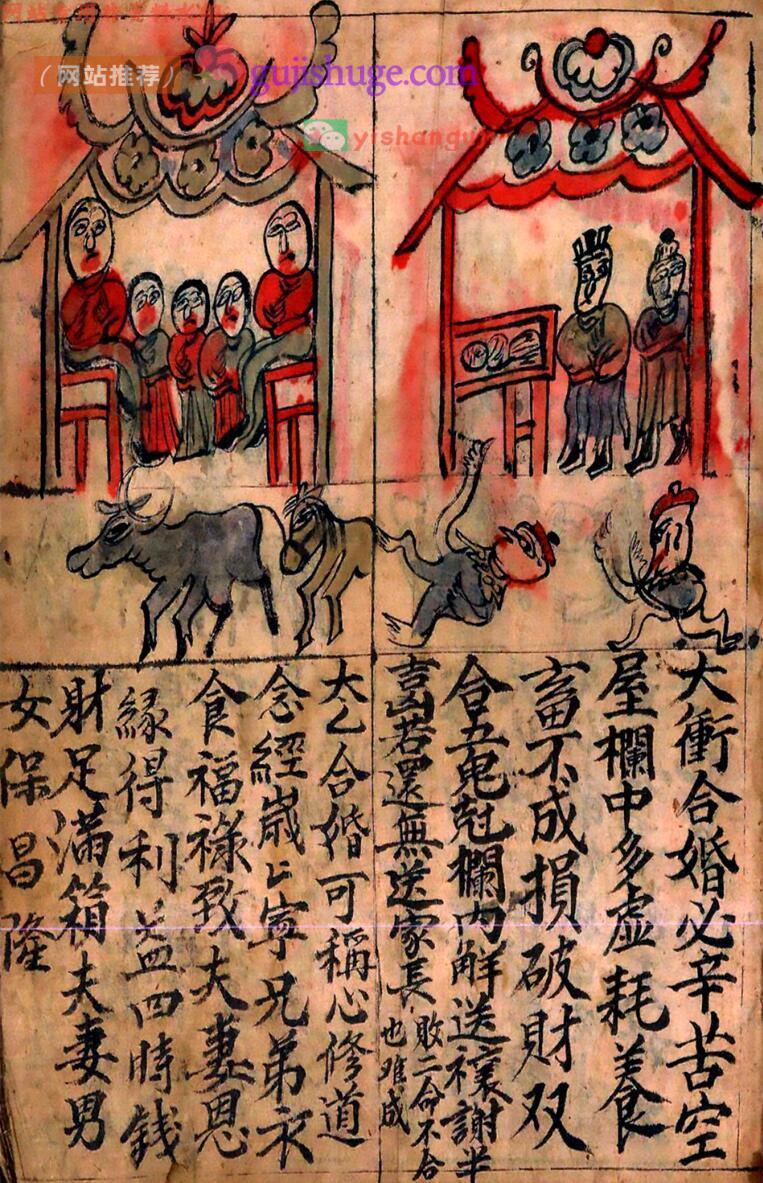 （网站推荐）
gujishuge.com
大衝合婚必辛苦空
屋欄中多虛耗養
畜不成損破財双
合五鬼尅欄内解送禳謝半
若還無送家長
敗二命不合
也难成
大乙合婚可稱心修道
念經歲〻寧兄弟衣
食福祿致夫妻恩
緣得利益四時錢
財足滿箱夫妻男
女保昌隆